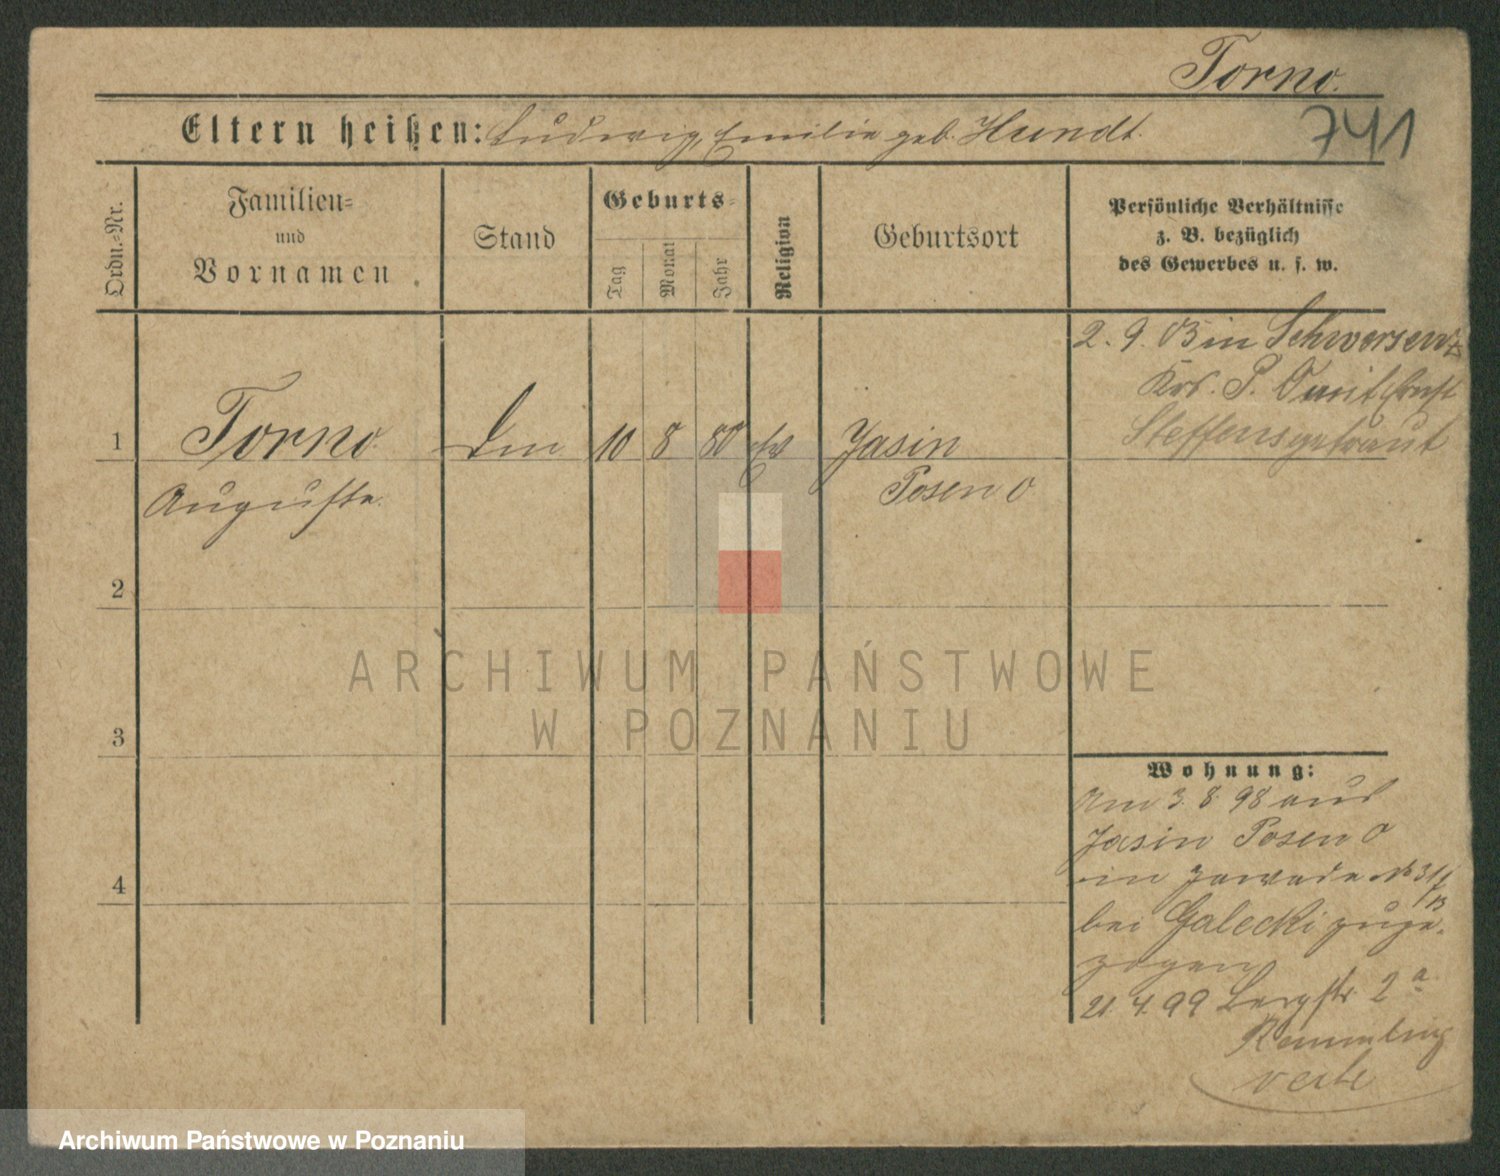 Torno.
741
Eltern heißen: Ludwig, Emilie geb. Hundt.
Ordn.-Nr.
Familien-
und
Vornamen
Stand
Geburts-
Tag
Monat
Jahr
Religion
Geburtsort
Persönliche Verhältnisse
z. B. bezüglich
des Gewerbes u. s. w.
2. 9. 03 in Schwersenz
Krs. P. O mit Ernst
Steffens getraut
1
Torno
10
8
80
ev
Jasin
Auguste.
Posen O
2
3
4
ARCHIWUM PAŃSTWOWE
W POZNANIU
Wohnung:
Am 3. 8. 98 aus
Jasin Posen O
in Zawade No 31/
bei Galecki zuge-
zogen
21. 4. 99 Bergstr 2a
Remmling
Archiwum Państwowe w Poznaniu